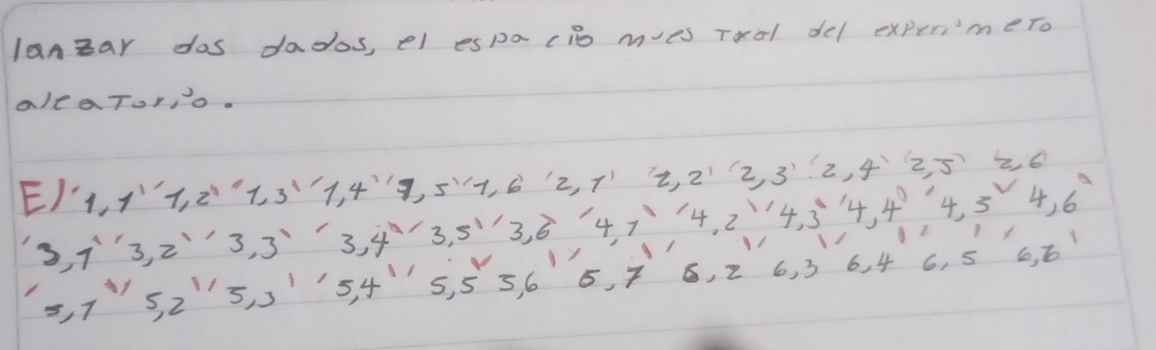 lanzar dos dados, el espacio muestral del experimeto
aleatorio.
E) '1,1' '1,2' '1,3' '1,4' '1,5' '1,6 '2,1' '2,2' '2,3' '2,4' '2,5' 2,6
'3,1' '3,2' '3,3' '3,4' '3,5' '3,6' '4,1' '4,2' '4,3' '4,4' '4,5' '4,6'
'5,1' '5,2' '5,3' '5,4' '5,5' 5,6' '6,1' '6,2' '6,3' '6,4' '6,5' '6,6'